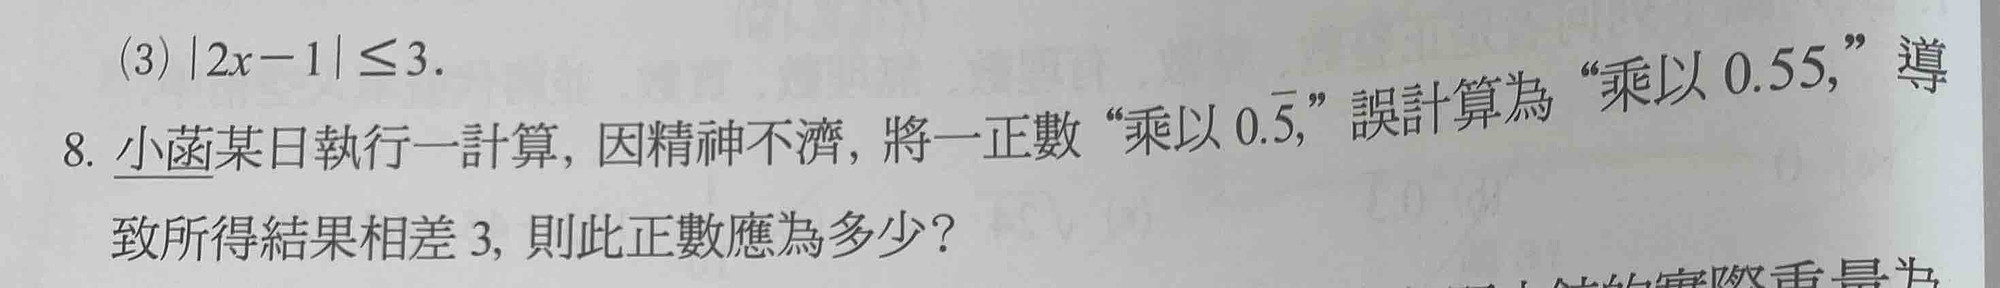 (3) |2x−1| ≤ 3.
8. 小菡某日執行一計算, 因精神不濟, 將一正數 “乘以 0.5̅,” 誤計算為 “乘以 0.55,” 導
致所得結果相差 3, 則此正數應為多少?